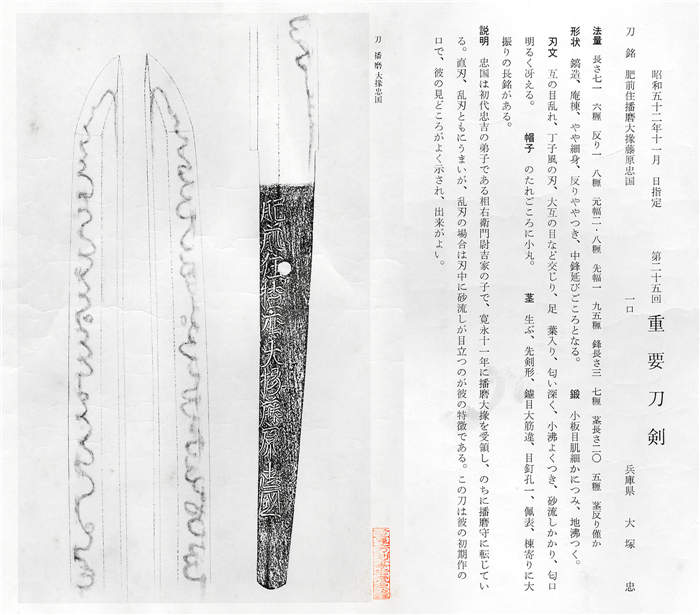 昭和五十二年十一月 日指定 第二十五回 重要刀剣
刀 銘 肥前住播磨大掾藤原忠国 一口 兵庫県 大塚 忠
法量 長さ七一 六糎 反り一 八糎 元幅二・八糎 先幅一 九五糎 鋒長さ三 七糎 茎長さ二〇 五糎 茎反り僅か
形状 鎬造、庵棟、やや細身、反りややつき、中鋒延びごころとなる。 鍛 小板目肌細かにつみ、地沸つく。
刃文 互の目乱れ、丁子風の刃、大互の目など交じり、足 葉入り、匂い深く、小沸よくつき、砂流しかかり、匂口
明るく冴える。 帽子 のたれごころに小丸。 茎 生ぶ、先剣形、鑢目大筋違、目釘孔一、佩表、棟寄りに大
振りの長銘がある。
説明 忠国は初代忠吉の弟子である相右衛門尉吉家の子で、寛永十一年に播磨大掾を受領し、のちに播磨守に転じてい
る。直刃、乱刃ともにうまいが、乱刃の場合は刃中に砂流しが目立つのが彼の特徴である。この刀は彼の初期作の
口で、彼の見どころがよく示され、出来がよい。
刀 播磨大掾忠国
肥前住播磨大掾藤原忠國